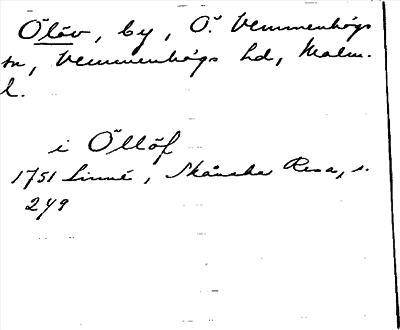 Ölöv, by, Ö. Vemmenhögs
sn, Vemmenhögs hd, Malm.
l.
i Öllöf
1751 Linné, Skånska Resa, s.
249